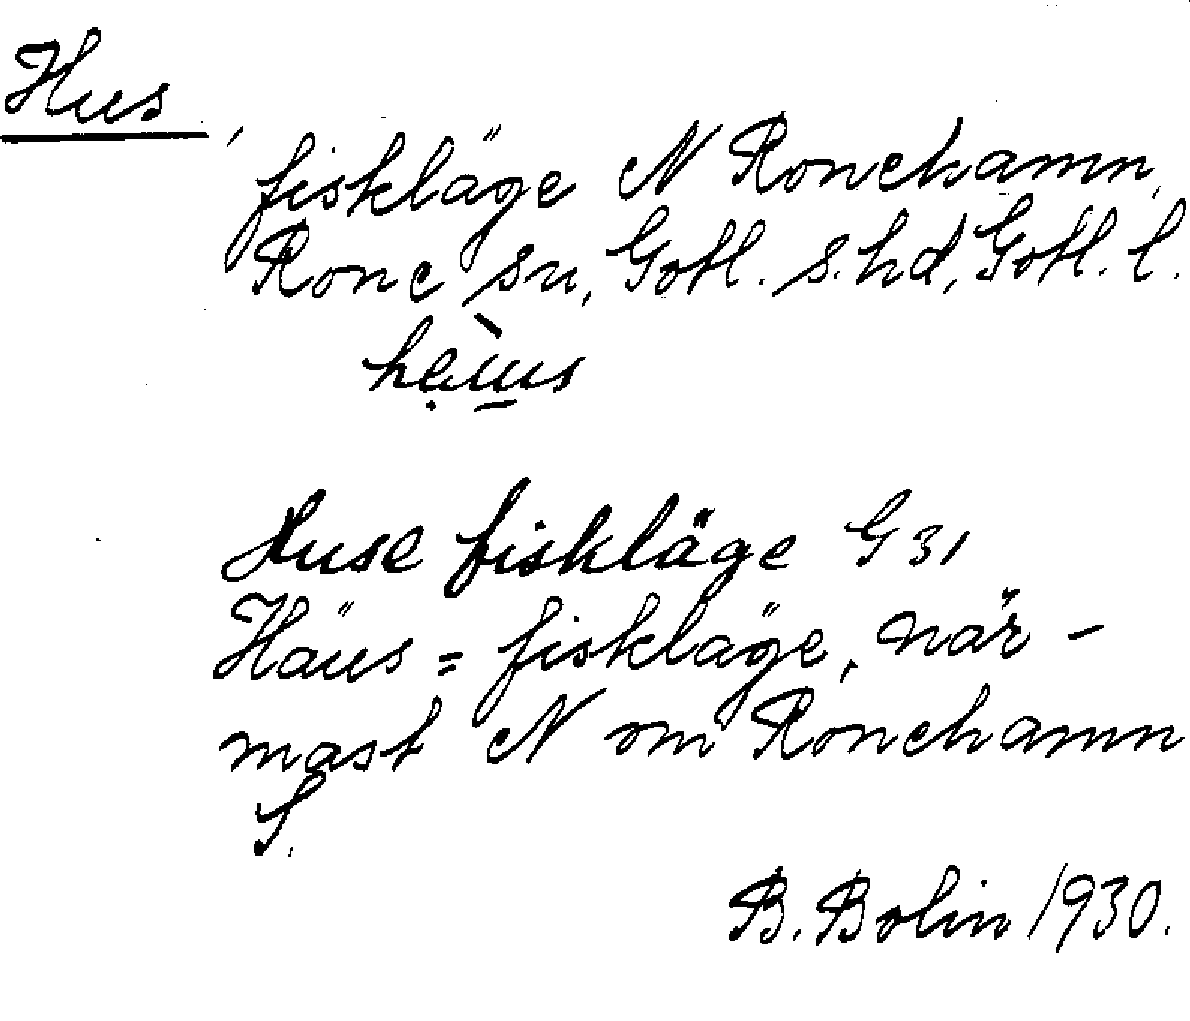 Hus,
fiskläge N Ronehamn,
Rone sn, Gotl. s. hd, Gotl. l.
Huse fiskläge G 31
Häus = fiskläge, när-
mast N om Ronehamn
S.
B. Bolin 1930.